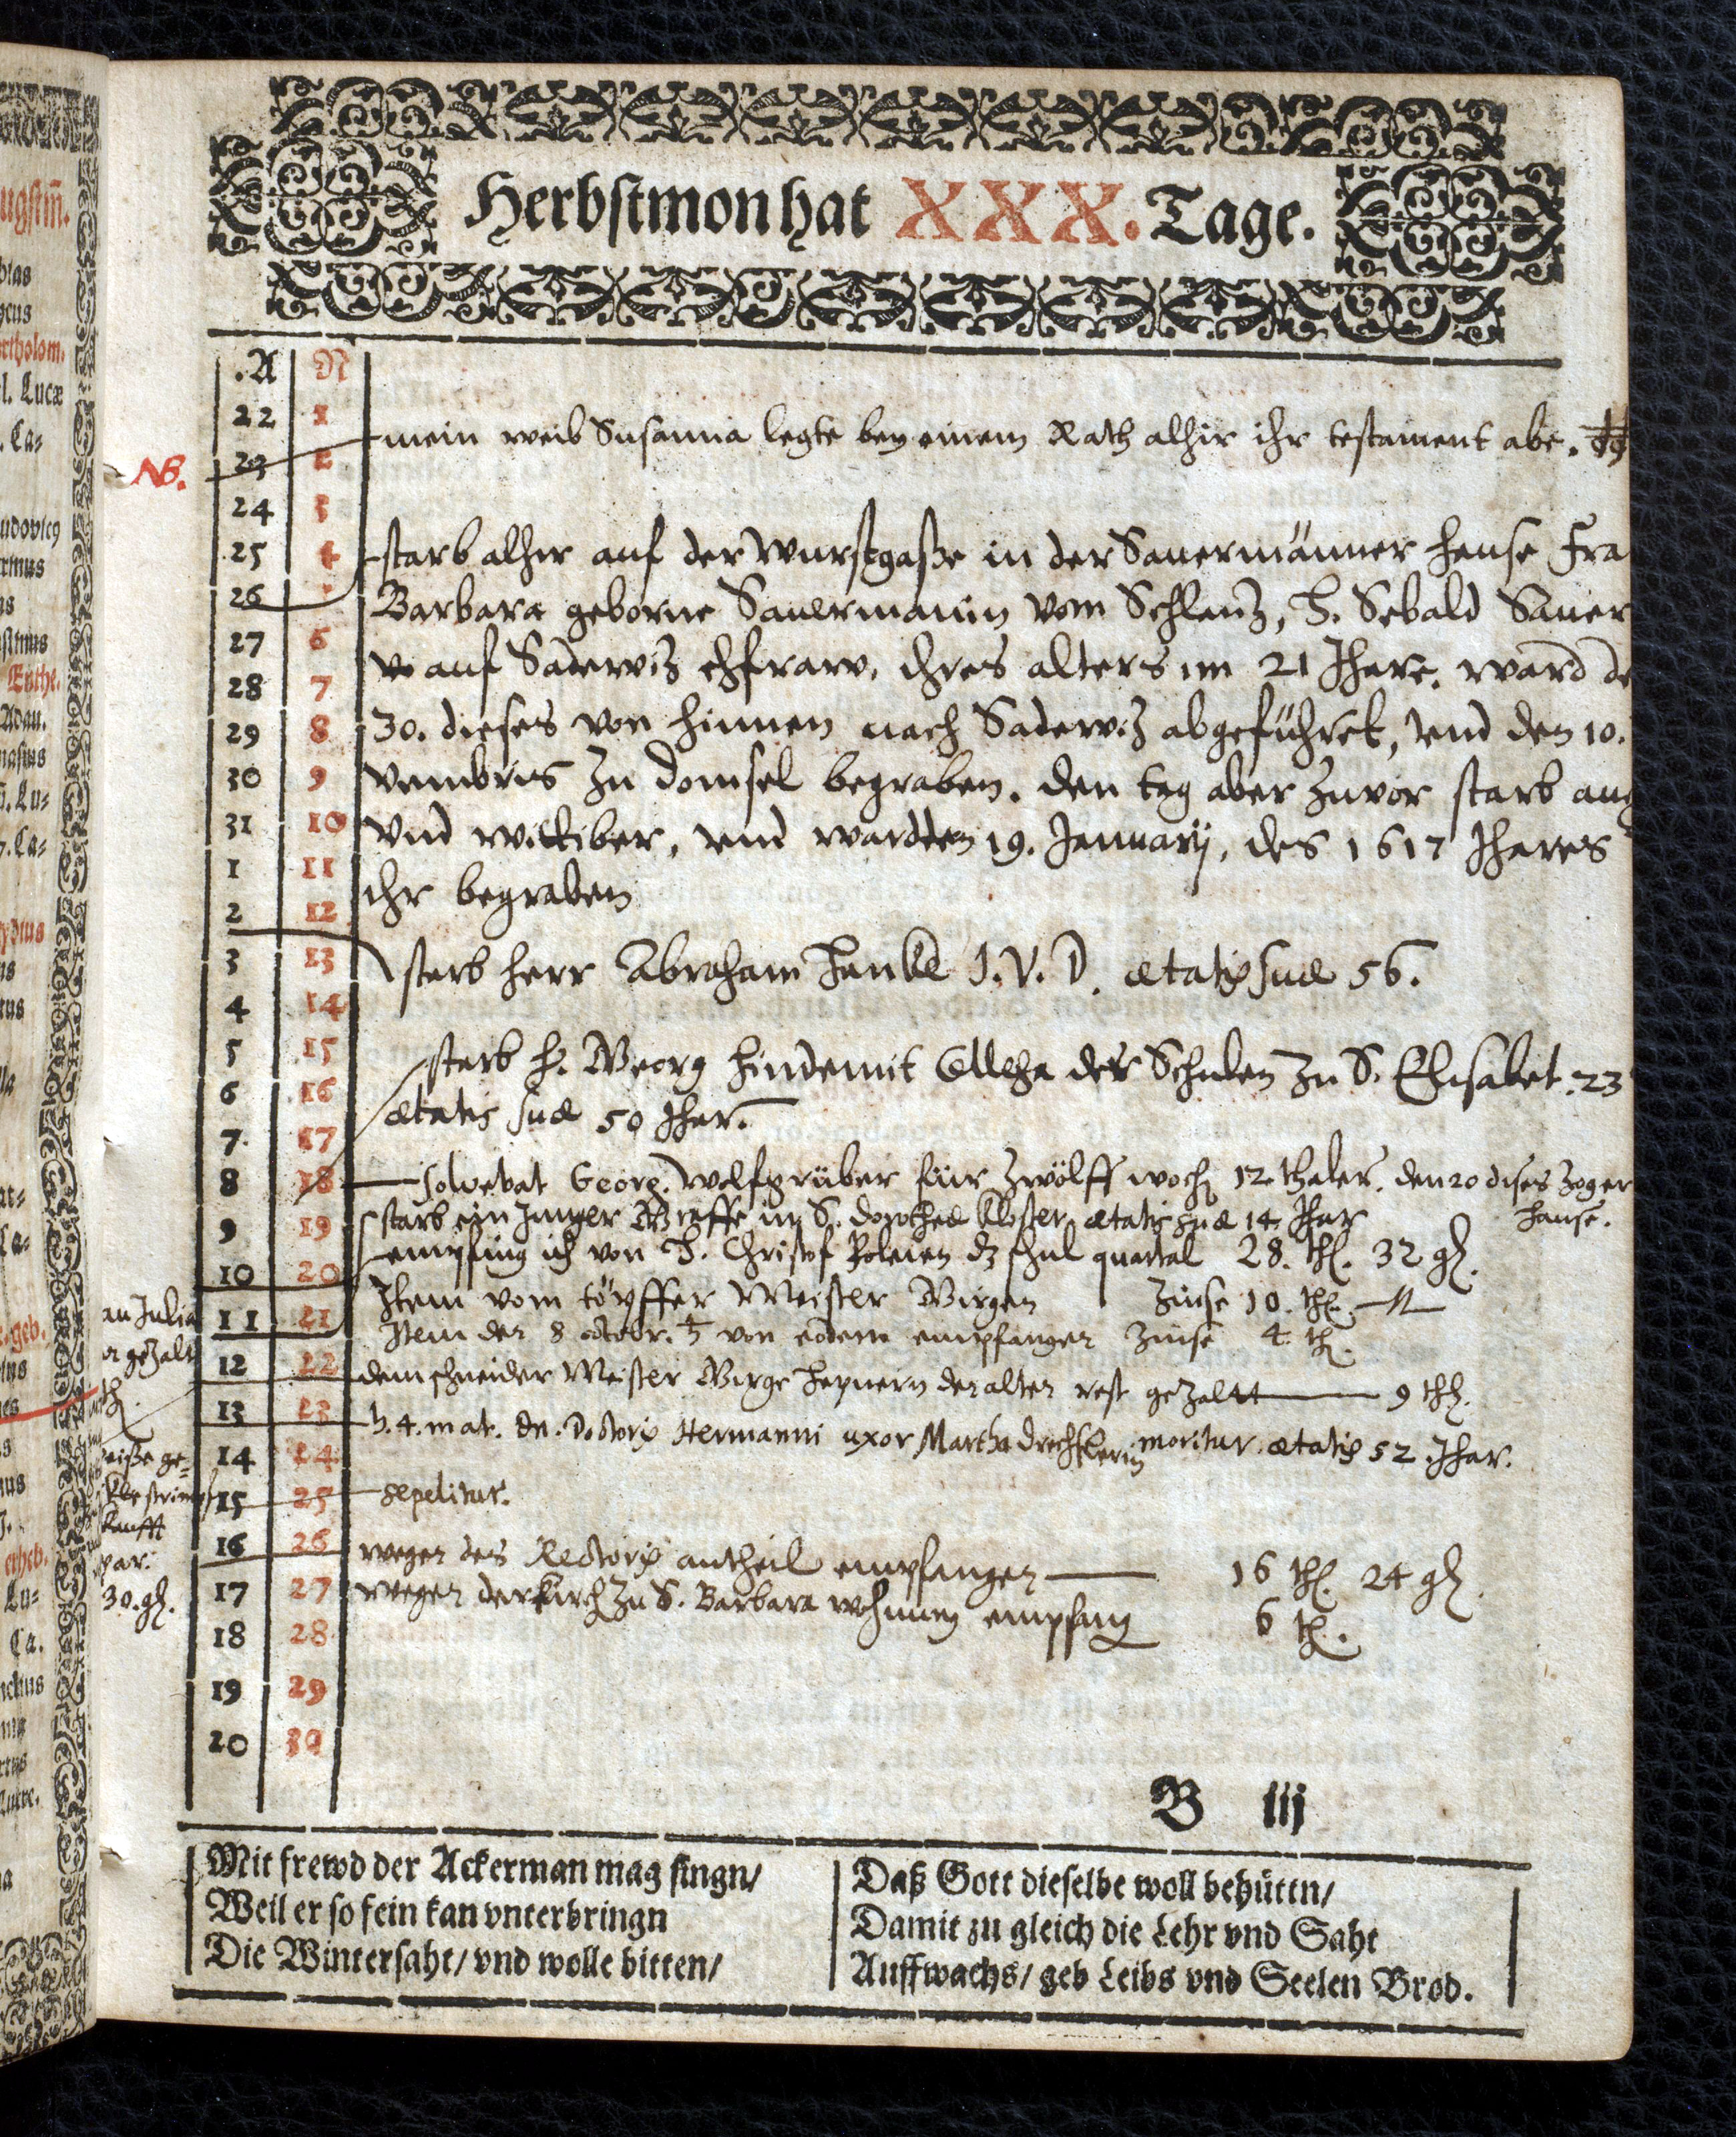 Herbstmon hat XXX. Tage.
.A N
22 1
mein weib Susanna legte bey einem Rath alhir ihr testament abe.
NB.
23 2
24 3
25 4
starb alhir auf der Wurstgaße in der Sauermänner hause Fra
26
Barbara geborne Sauermannin vom Schlanz, H. Sebald Sauer
27 6
auf Sadewiz ehfraw, ihres alters im 21 Jhare. ward de
28 7
29 8
30. dieses von hinnen nach Sadewiz abgeführet, vnd den 10.
30 9
vembris zu domsel begraben. den tag aber zuvor starb auch
31 10
vnd ward den 19. Januarij, des 1617 Jhares
1 11
ihr begraben
2 12
3 13
starb herr Abraham J.V.D. ætatis suæ 56.
4 14
5 15
starb H. Georg Hindemit der Schulen zu S. Elisabet. 23
6 16
ætatis suæ 50 Jhar.
7 17
8 18
solvebat Georg. Wolfgrüber für zwölff woch 12 thaler. den 20 dises zog er
hause.
9 19
starb ein Junger in S. dorotheæ kloster ætatis suæ 14 Jhar
empfing ich von H. Christof dz schul quartal 28. th. 32 gh.
10 20
Item vom töpffer Meister Zinse 10. th.
11 21
Item den 8 octobr. von eodem empfangen Zinse 4. th.
12 22
dem schneider Meister den alten rest gezaltt 9 th.
13 23
h. 4. mat. dn. Doctoris Hermanni uxor Martha Drechslerin moritur. ætatis 52 Jhar.
14 24
15 25
sepelitur.
16 26
wegen des Rectoris antheil empfangen 16 th. 24 gh.
17 27
wegen der kirch zu S. Barbara empfang 6 th.
18 28
19 29
20 30
B iij
Mit frewd der Ackerman mag singn/
Weil er so fein kan vnterbringn
Die Wintersaht/ vnd wolle bitten/
Daß Gott dieselbe woll behüttn/
Damit zu gleich die Lehr vnd Saht
Auffwachs/ geb Leibs vnd Seelen Brod.